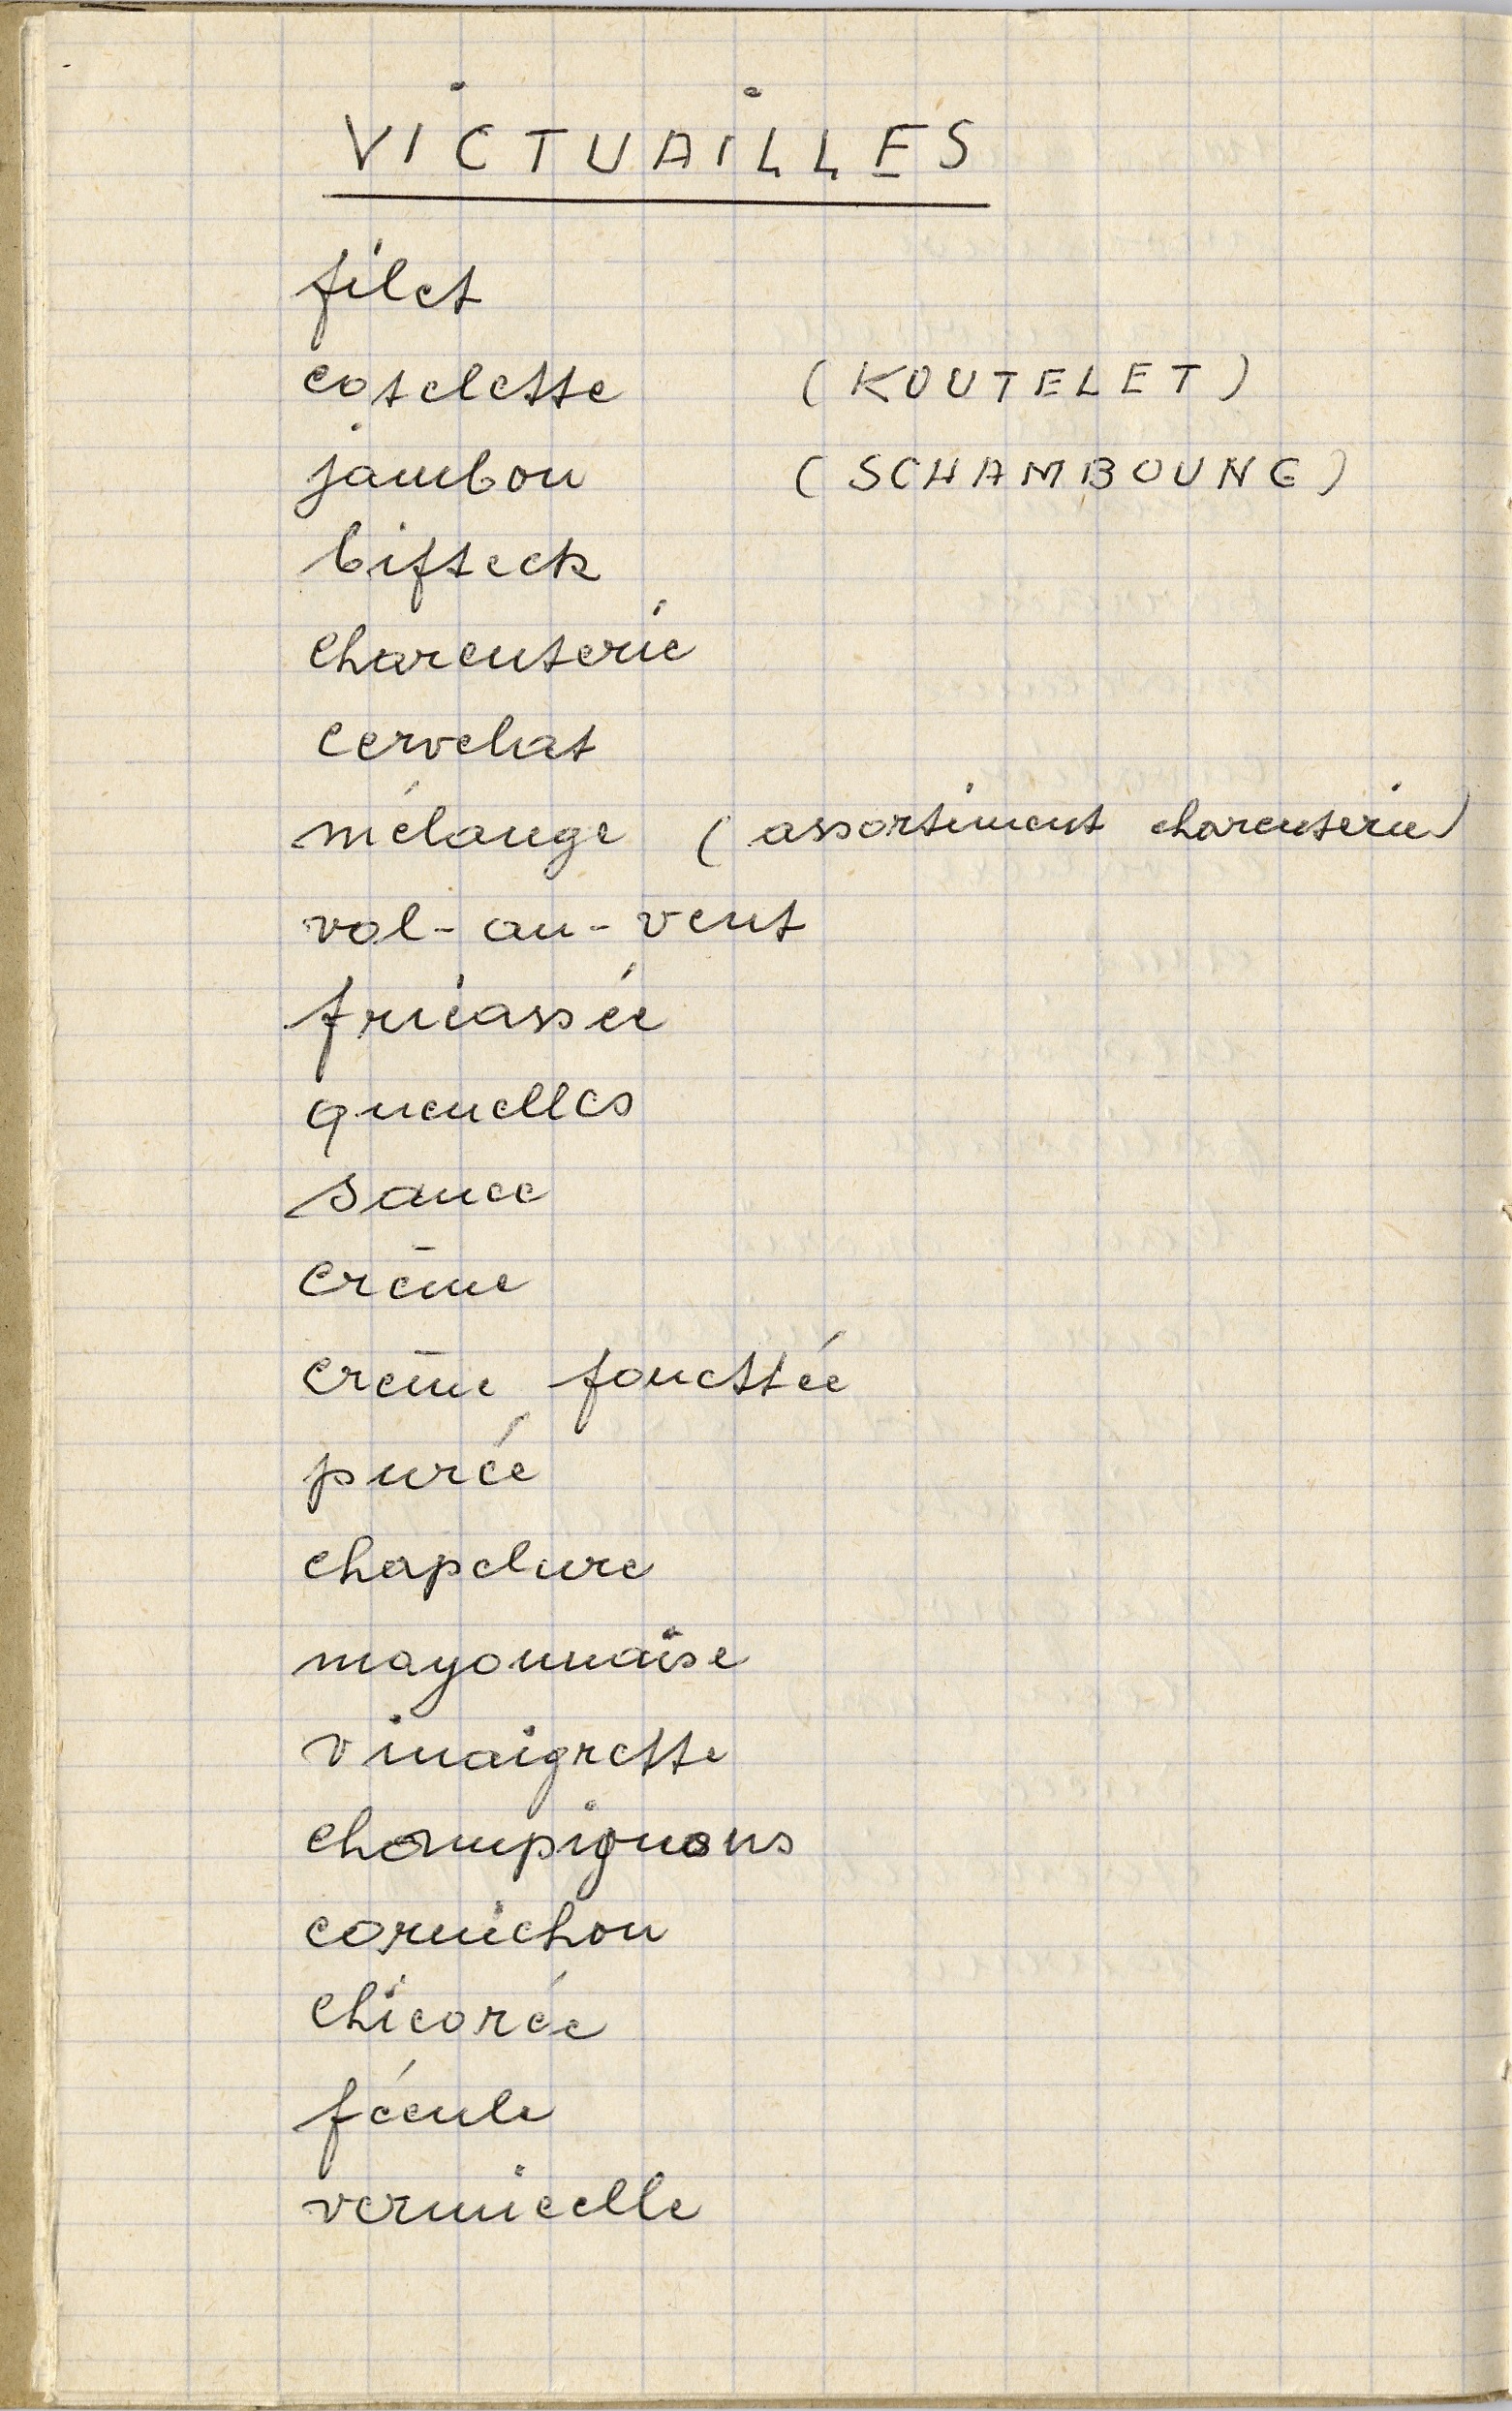 VICTUAILLES
filet
cotelette (KOUTELET)
jambon (SCHAMBOUNG)
bifteck
charcuterie
cervelat
mélange (assortiment charcuterie)
vol-au-vent
fricassée
quenelles
sauce
crème
crème fouettée
purée
chapelure
mayonnaise
vinaigrette
champignons
cornichon
chicorée
fécule
vermicelle